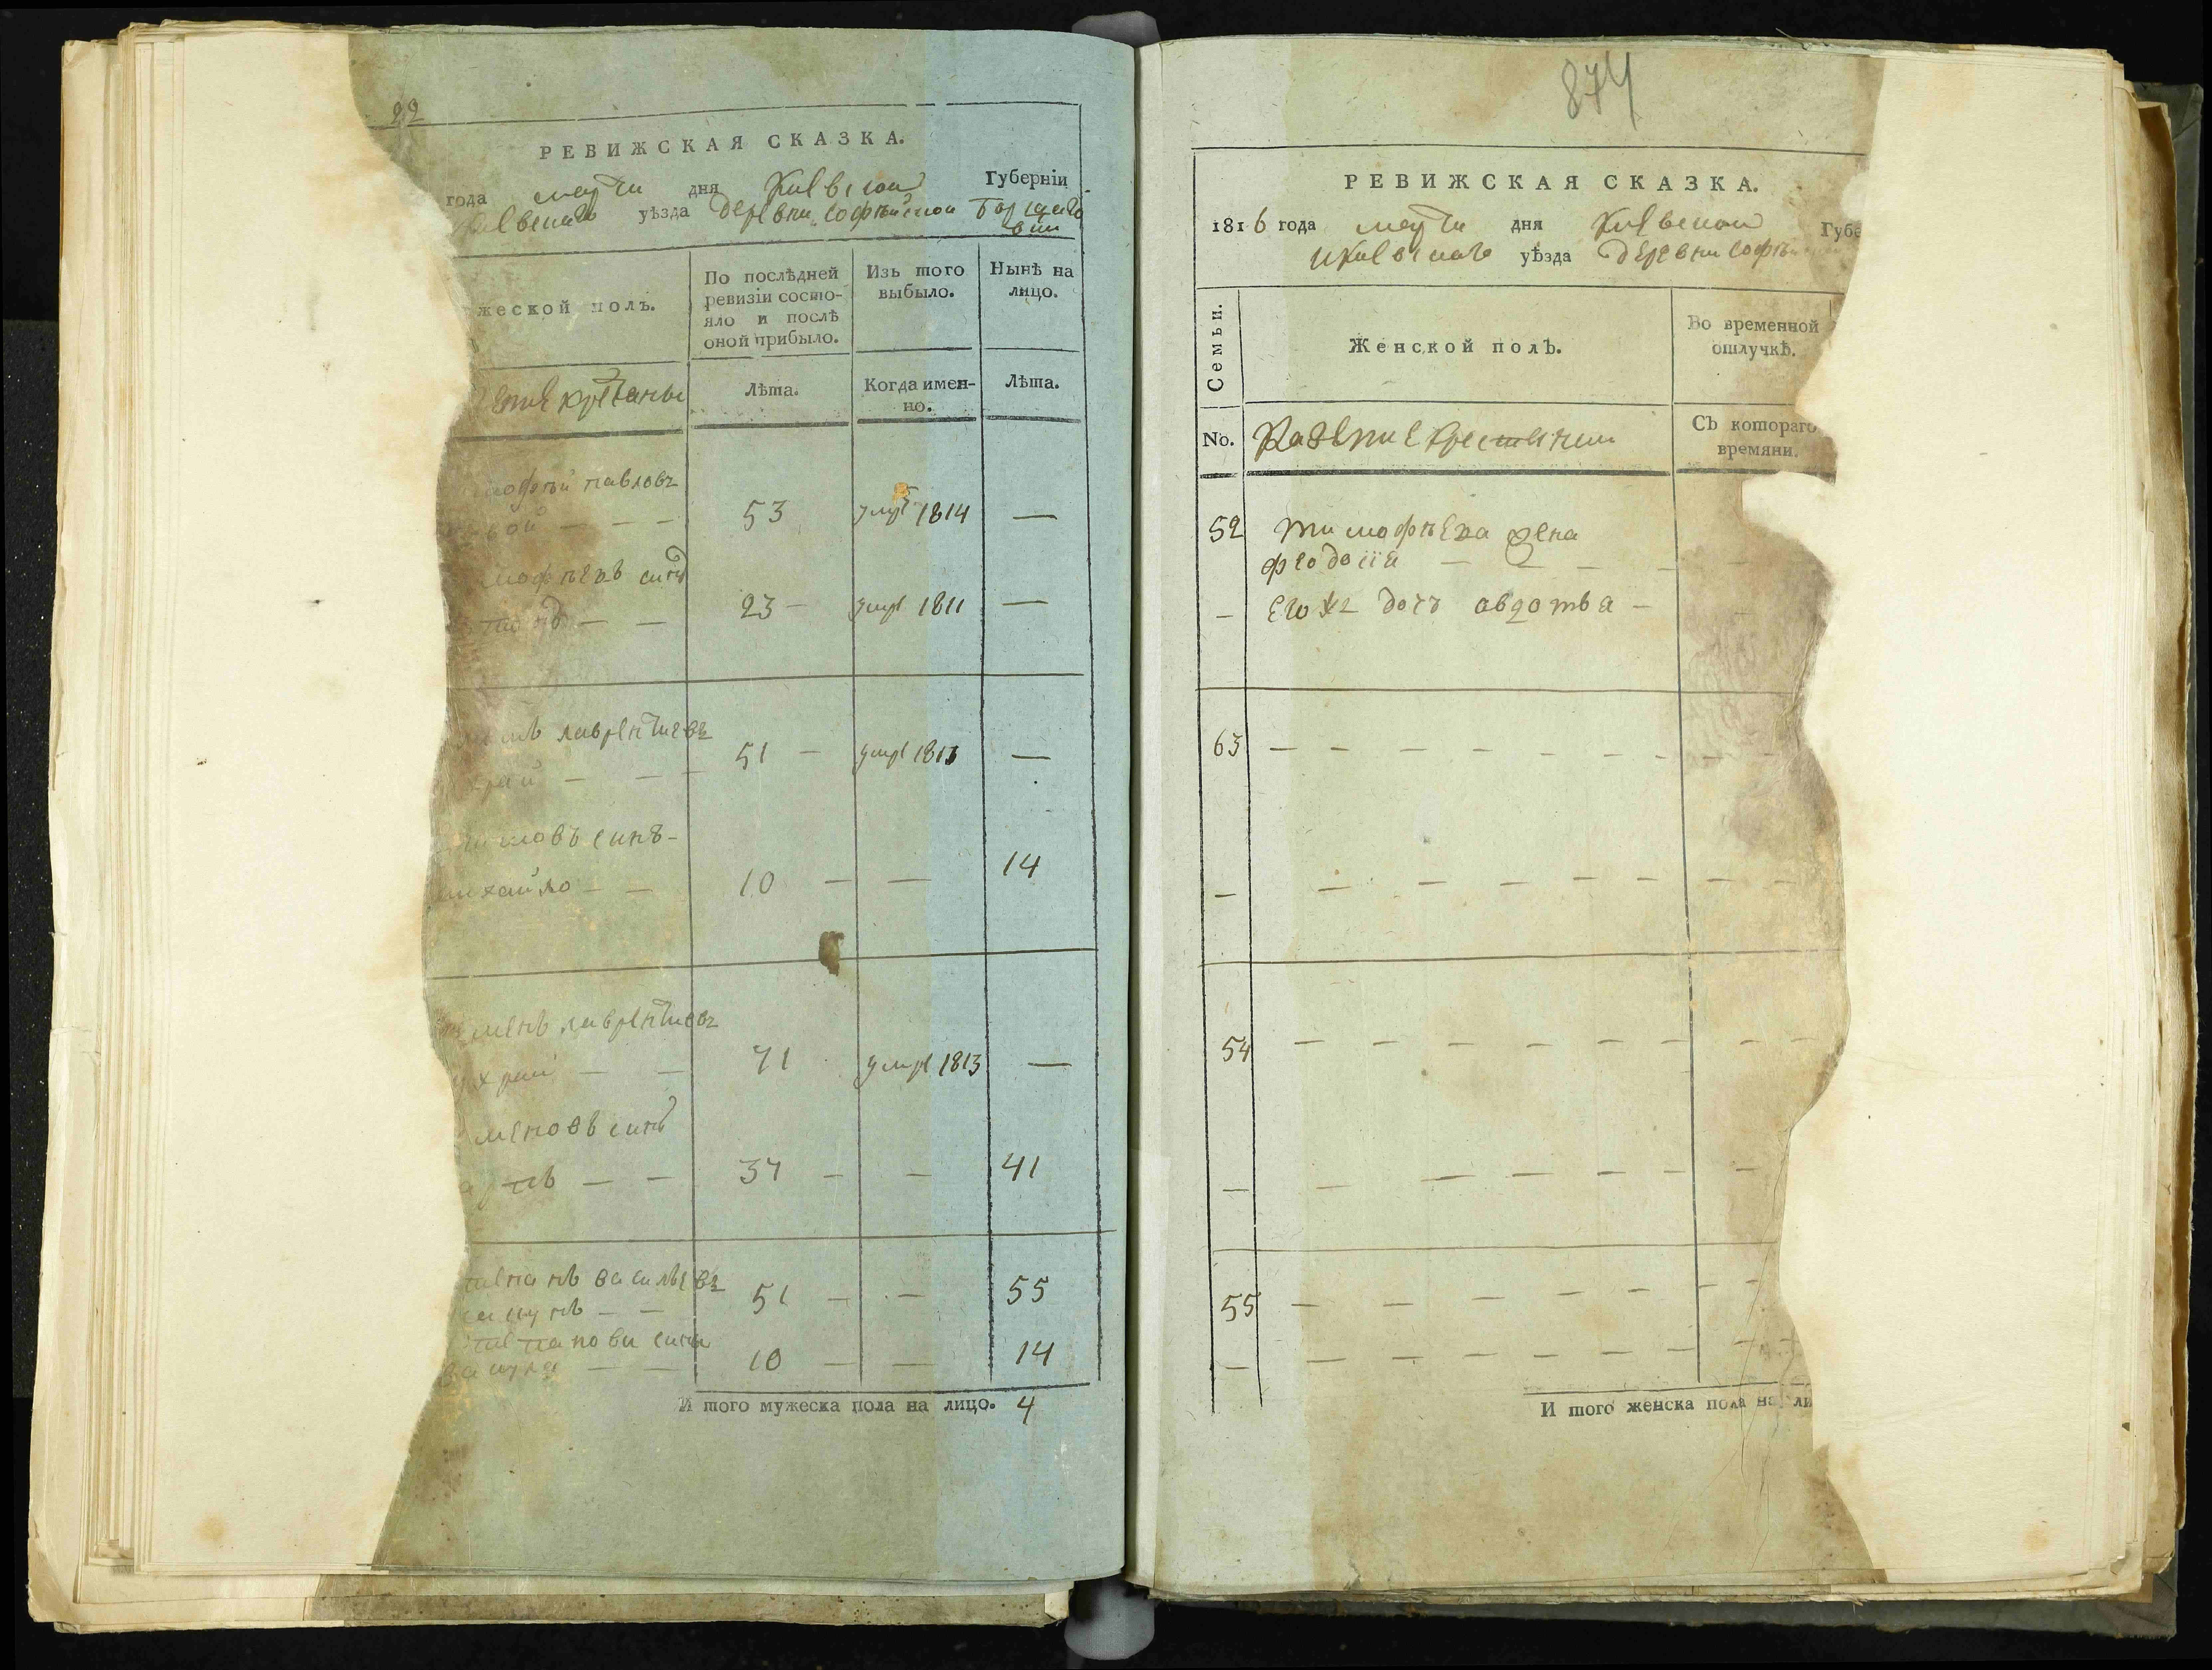 22
РЕВИЖСКАЯ СКАЗКА.
года марта дня Киевской Губерніи
Киевскаго уѣзда деревни Софѣйской Борщаго
вки
жеской полъ.
По послѣдней ревизіи состо-яло и послѣ оной прибыло.
Изъ того выбыло.
Нынѣ на лицо.
крестяны
Лѣта.
Когда имен-но.
Лѣта.
мофѣй павловъ
53 умре 1814 —
мофѣевъ синъ
23 — умре 1811 —
лаврентиевъ
51 — умре 1813 —
синъ —
михайло — — 10 — — 14
менъ лаврентиевъ
хрой — — 71 умре 1813 —
меновъ синъ
— — 37 — — 41
тепанъ васильевъ
— — 51 — — 55
тепанови сини
— — 10 — — 14
И того мужеска пола на лицо. 4
874
РЕВИЖСКАЯ СКАЗКА.
1816 года марта дня Киевской Губе
Киевскаго уѣзда деревни Софѣй
Семьи.
Женской полъ.
Во временной отлучкѣ.
No.
Казенние крестянки
Съ котораго времяни.
52 тимофѣева жена
феодосія — — — —
— его жъ дочъ авдотъя —
63 — — — — — — —
— — — — — — — —
54 — — — — — — — —
— — — — — — —
55 — — — — — — —
— — — — — — — —
И того женска пола на ли